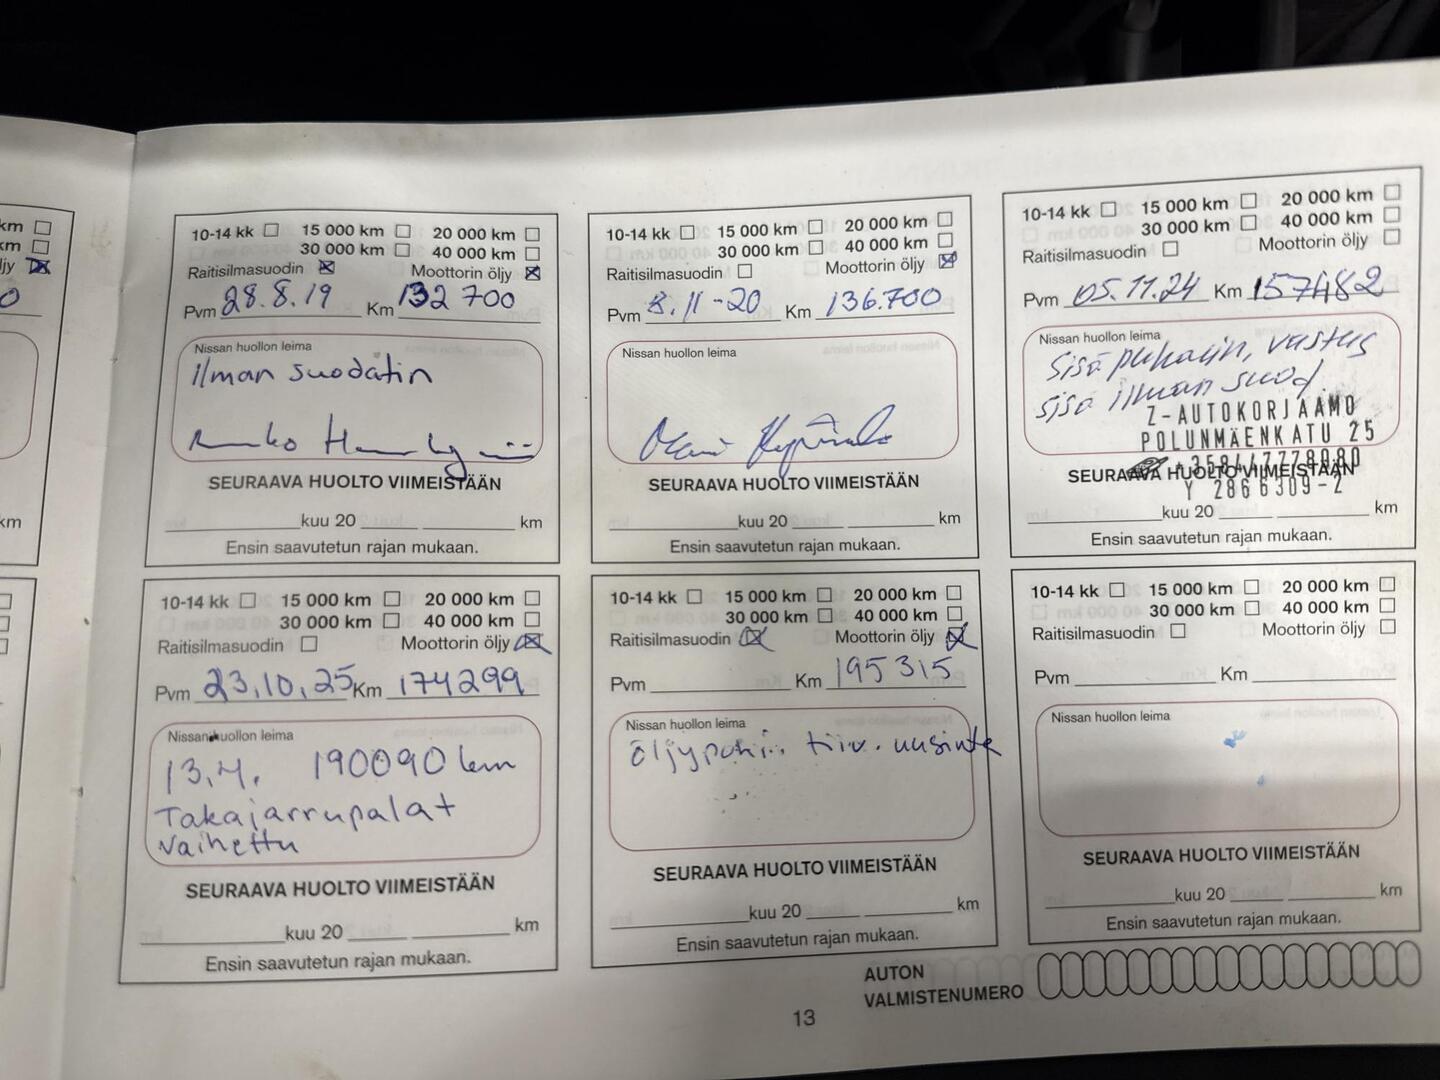 km
km
öljy
0
km
10-14 kk 15 000 km 20 000 km
30 000 km 40 000 km
Raitisilmasuodin Moottorin öljy
Pvm 28.8.19 Km 132 700
Nissan huollon leima
ilman suodatin
SEURAAVA HUOLTO VIIMEISTÄÄN
kuu 20 km
Ensin saavutetun rajan mukaan.
10-14 kk 15 000 km 20 000 km
30 000 km 40 000 km
Raitisilmasuodin Moottorin öljy
Pvm 3.11-20 Km 136.700
Nissan huollon leima
SEURAAVA HUOLTO VIIMEISTÄÄN
kuu 20 km
Ensin saavutetun rajan mukaan.
10-14 kk 15 000 km 20 000 km
30 000 km 40 000 km
Raitisilmasuodin Moottorin öljy
Pvm 05.11.24 Km 157482
Nissan huollon leima
sisä puhalin, vastus
sisä ilman suod
Z-AUTOKORJAAMO
POLUNMÄENKATU 25
+358447778080
SEURAAVA HUOLTO VIIMEISTÄÄN
Y 2866309-2
kuu 20 km
Ensin saavutetun rajan mukaan.
10-14 kk 15 000 km 20 000 km
30 000 km 40 000 km
Raitisilmasuodin Moottorin öljy
Pvm 23.10.25 Km 174299
Nissan huollon leima
13.4. 190090 km
Takajarrupalat
vaihettu
SEURAAVA HUOLTO VIIMEISTÄÄN
kuu 20 km
Ensin saavutetun rajan mukaan.
10-14 kk 15 000 km 20 000 km
30 000 km 40 000 km
Raitisilmasuodin Moottorin öljy
Pvm Km 195315
Nissan huollon leima
tiiv. uusinta
SEURAAVA HUOLTO VIIMEISTÄÄN
kuu 20 km
Ensin saavutetun rajan mukaan.
10-14 kk 15 000 km 20 000 km
30 000 km 40 000 km
Raitisilmasuodin Moottorin öljy
Pvm Km
Nissan huollon leima
SEURAAVA HUOLTO VIIMEISTÄÄN
kuu 20 km
Ensin saavutetun rajan mukaan.
AUTON
VALMISTENUMERO
13